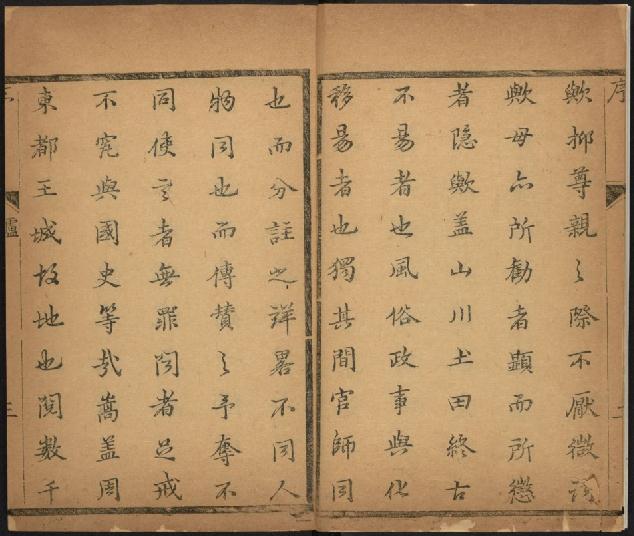 序
歟抑尊親之際不厭微
歟毋亦所勸者顯而所懲
者隐歟盖山川土田終古
不易者也風俗政事與化
移易者也獨其間官師同
也而分註之詳畧不同人
物同也而傳贊之予奪不
同使言者無罪聞者足戒
不究與國史等哉嵩盖周
東都王城故地也閲數千
三